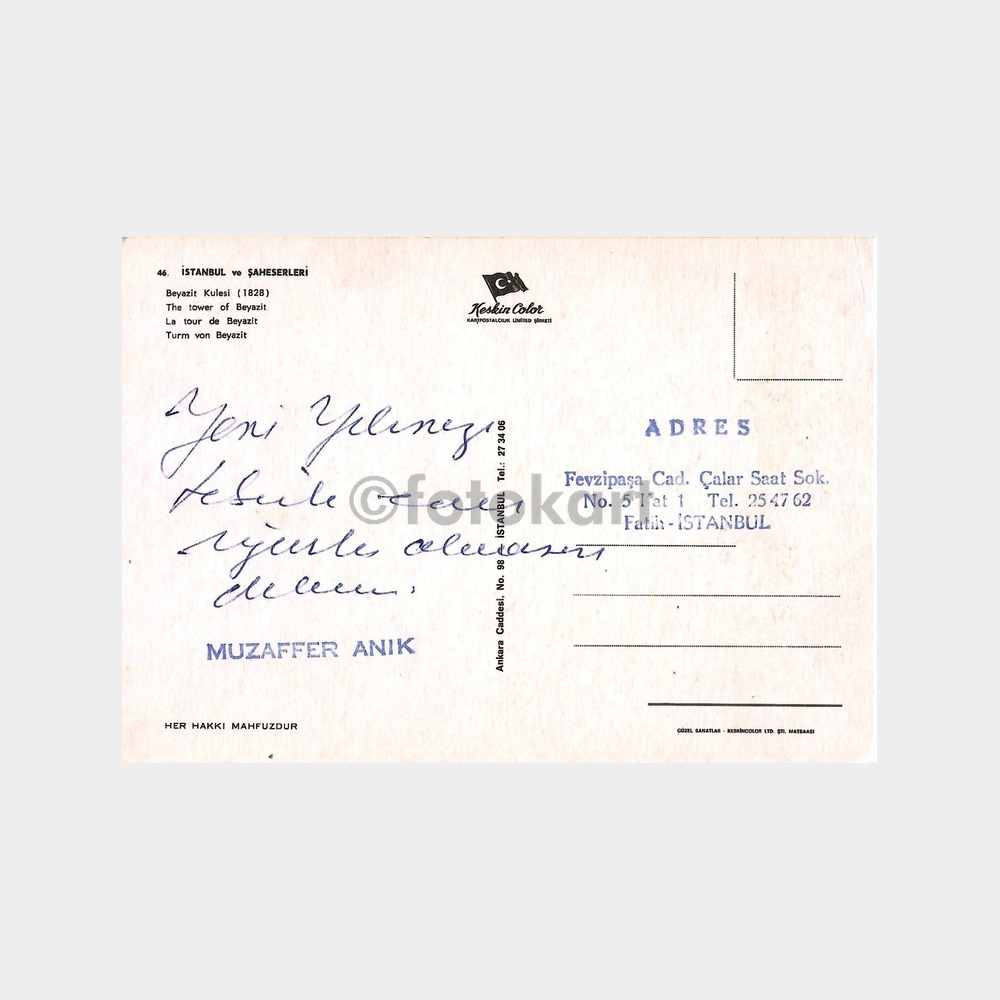 46. İSTANBUL ve ŞAHESERLERİ
Beyazit Kulesi (1828)
The tower of Beyazit
La tour de Beyazit
Turm von Beyazit
Keskin Color
KARTPOSTALCILIK LİMİTED ŞİRKETİ
Yeni Yılınızı
tebrik eder
uğurlu olmasını
dilerim.
MUZAFFER ANIK
HER HAKKI MAHFUZDUR
Ankara Caddesi, No. 98 - İSTANBUL Tel.: 27 34 06
ADRES
Fevzipaşa Cad. Çalar Saat Sok.
No. 5 Kat 1 Tel. 25 47 62
Fatih - İSTANBUL
GÜZEL SANATLAR - KESKİNCOLOR LTD. ŞTİ. MATBAASI
©fotokart